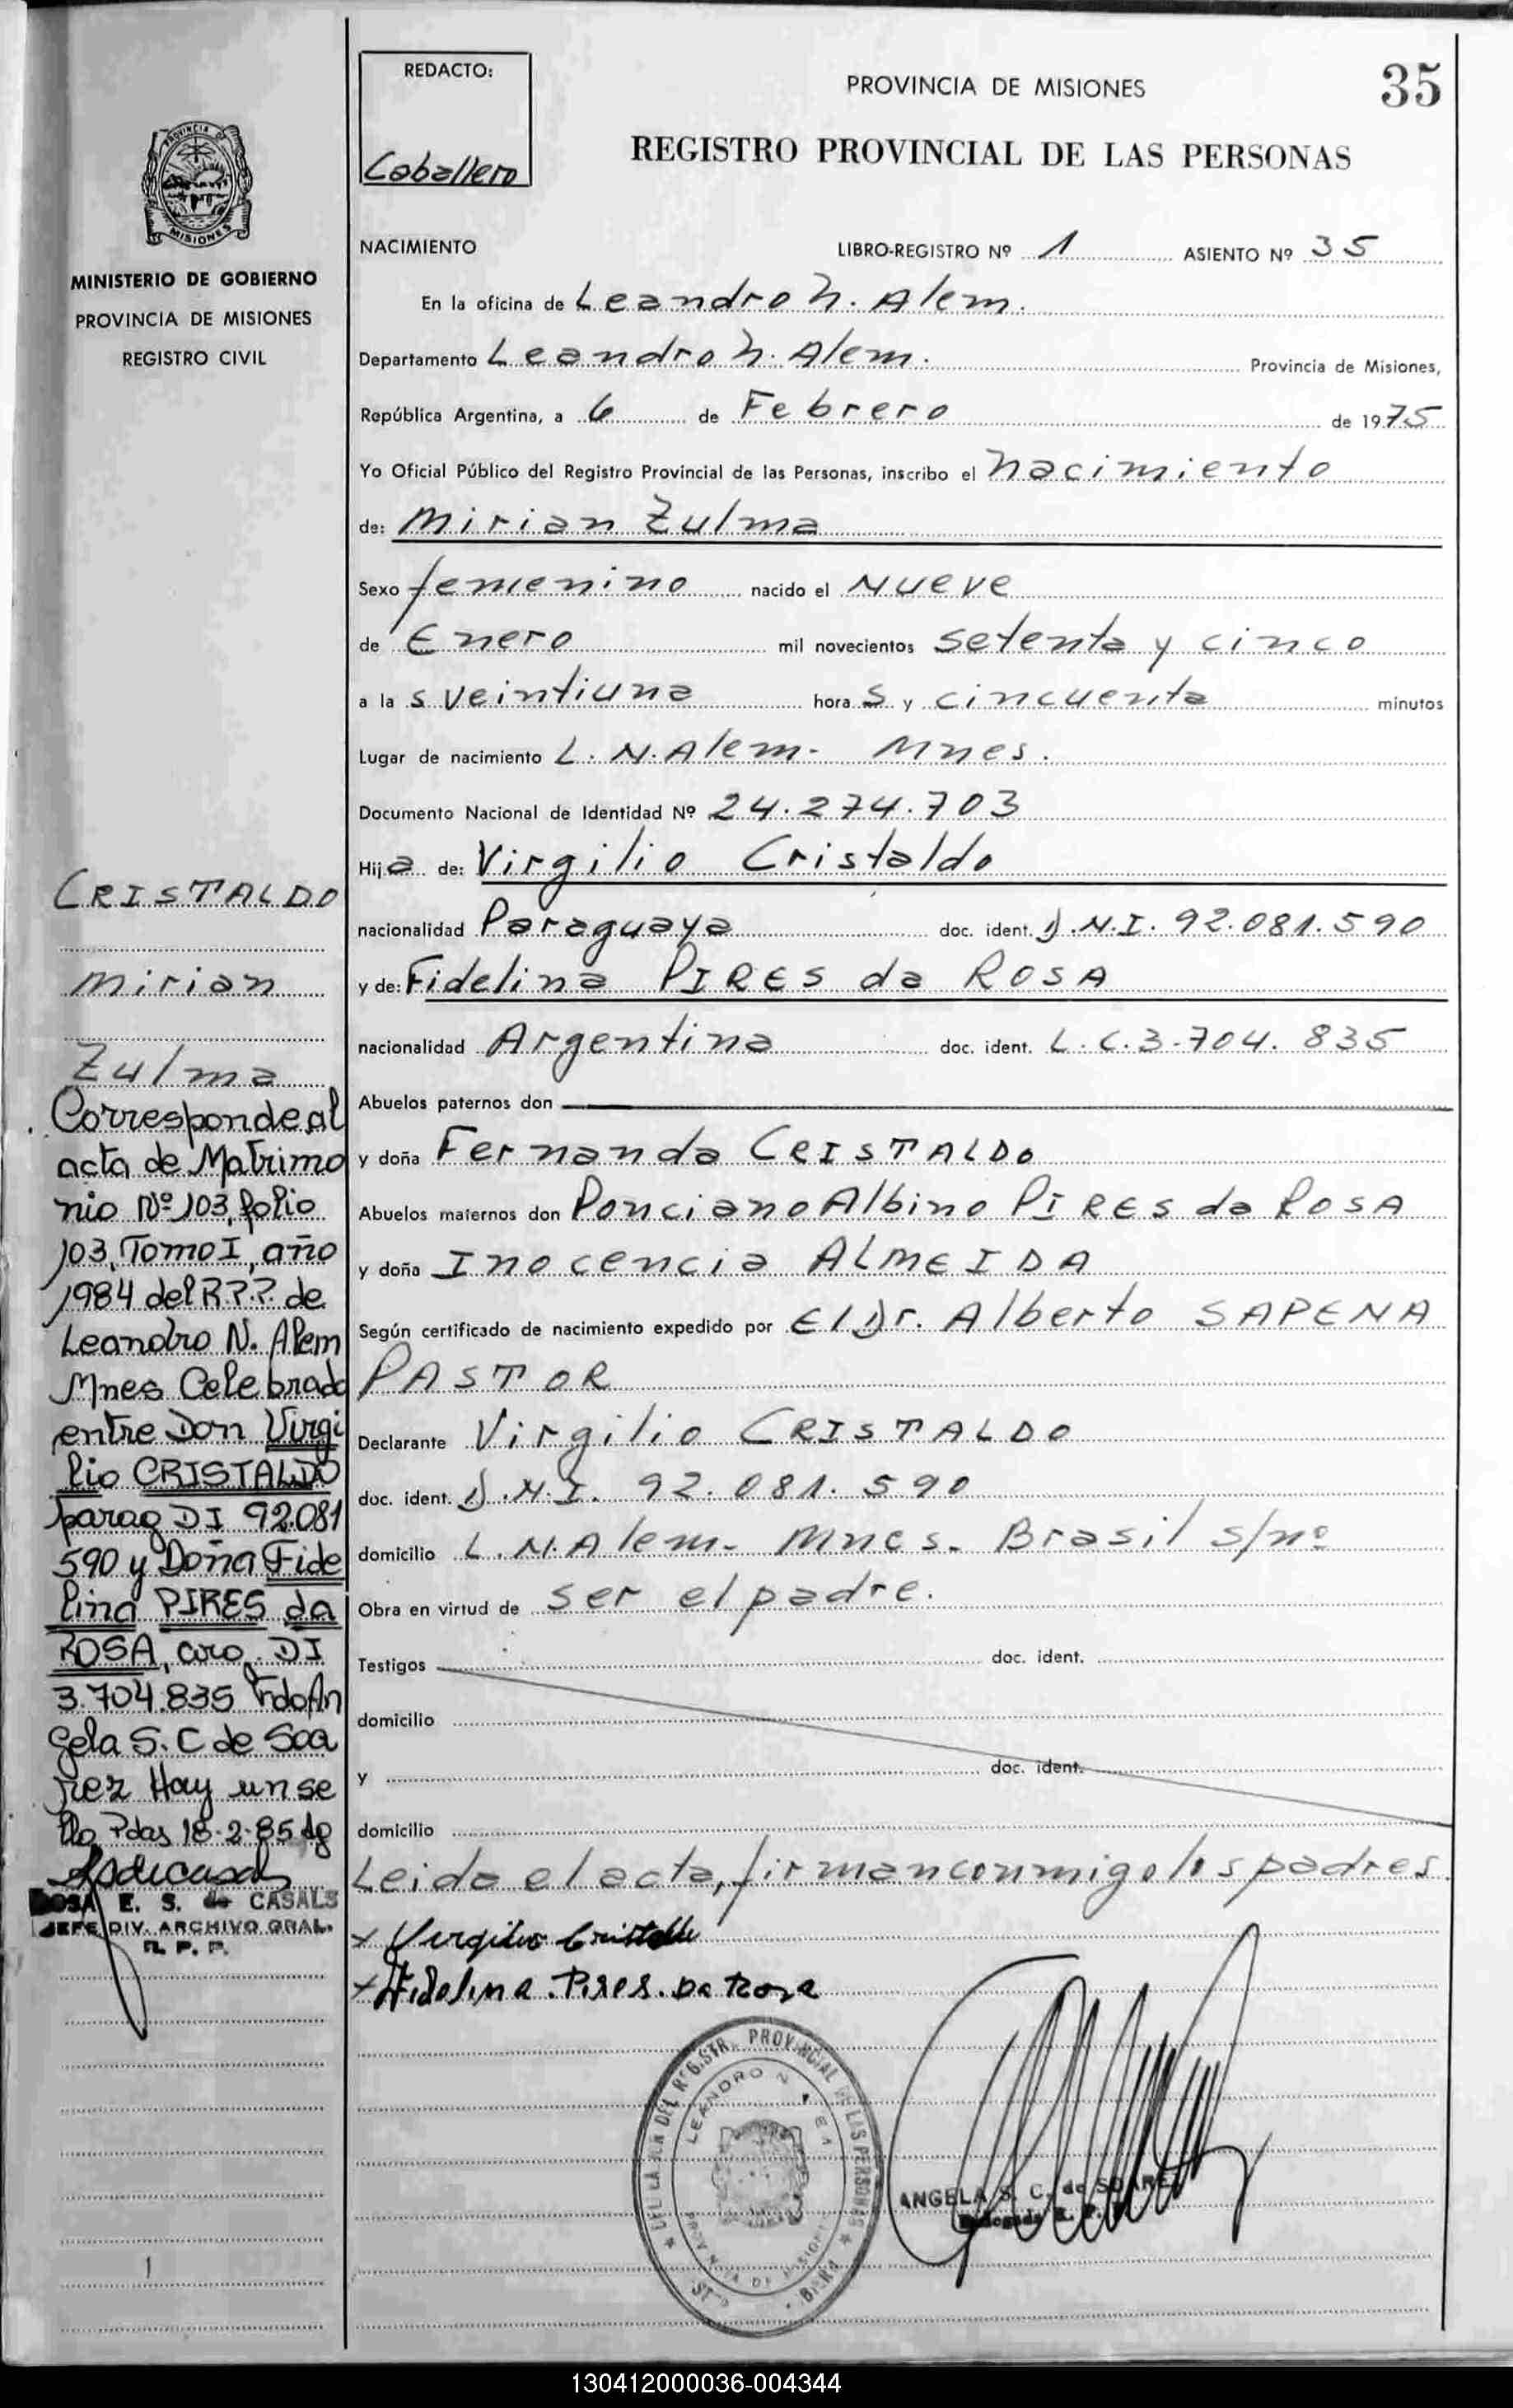 PROVINCIA DE
MISIONES
MINISTERIO DE GOBIERNO
PROVINCIA DE MISIONES
REGISTRO CIVIL
CRISTALDO
Mirian
Zulma
Corresponde al
acta de Matrimo
nio Nº 103, folio
103, Tomo I, año
1984 del R.P.P. de
Leandro N. Alem
Mnes Celebrado
entre Don Virgi
lio CRISTALDO
parag DI 92.081
590 y Doña Fide
lina PIRES da
ROSA, arg. DI
3.704.835 Fdo An
gela S. C de Soa
rez Hay un se
llo Pdas 18-2-85
ROSA E. S. de CASALS
JEFE DIV. ARCHIVO GRAL.
R. P. P.
REDACTO:
Caballero
PROVINCIA DE MISIONES
35
REGISTRO PROVINCIAL DE LAS PERSONAS
NACIMIENTO LIBRO-REGISTRO Nº 1 ASIENTO Nº 35
En la oficina de Leandro N. Alem.
Departamento Leandro N. Alem. Provincia de Misiones,
República Argentina, a 6 de Febrero de 1975
Yo Oficial Público del Registro Provincial de las Personas, inscribo el nacimiento
de: Mirian Zulma
Sexo femenino nacido el Nueve
de Enero mil novecientos setenta y cinco
a la s veintiuna hora s y cincuenta minutos
Lugar de nacimiento L. N. Alem - Mnes.
Documento Nacional de Identidad Nº 24.274.703
Hija de: Virgilio Cristaldo
nacionalidad Paraguaya doc. ident. D.N.I. 92.081.590
y de: Fidelina PIRES da ROSA
nacionalidad Argentina doc. ident. L.C. 3.704.835
Abuelos paternos don
y doña Fernanda CRISTALDO
Abuelos maternos don Ponciano Albino PIRES da ROSA
y doña Inocencia ALMEIDA
Según certificado de nacimiento expedido por El Dr. Alberto SAPENA
PASTOR
Declarante Virgilio CRISTALDO
doc. ident. D.N.I. 92.081.590
domicilio L.N. Alem - Mnes - Brasil s/nº
Obra en virtud de ser el padre.
Testigos doc. ident.
domicilio
y doc. ident.
domicilio
Leida el acta, firman conmigo los padres.
x Virgilio Cristaldo
x Fidelina . Pires . Da Rosa
PROVINCIAL DE LAS PERSONAS
LEANDRO N
ANGELA S. C. de SOAREZ
130412000036-004344